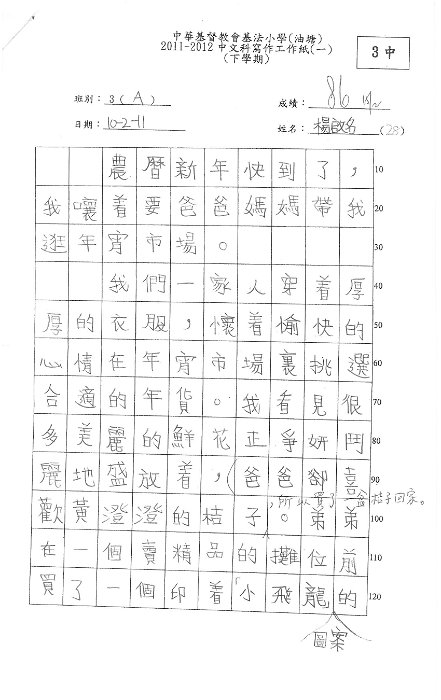 中華基督教會基法小學(油塘)
2011-2012 中文科寫作工作紙(一)
(下學期)
3 中
班別: 3(A)
成績: 86
日期: 10-2-11
姓名: 楊啟名 (28)
農曆新年快到了， 10
我嚷着要爸爸媽媽帶我 20
逛年宵市場。 30
我們一家人穿着厚 40
厚的衣服，懷着愉快的 50
心情在年宵市場裏挑選 60
合適的年貨。我看見很 70
多美麗的鮮花正爭妍鬥
麗地盛放着，爸爸卻喜 90
，所以買了一盆桔子回家。
歡黃澄澄的桔子。弟弟 100
在一個賣精品的攤位前 110
買了一個印着「小飛龍的 120
圖案